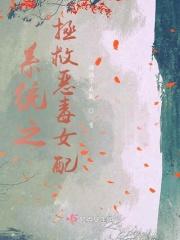 系统之
拯救恶毒女配